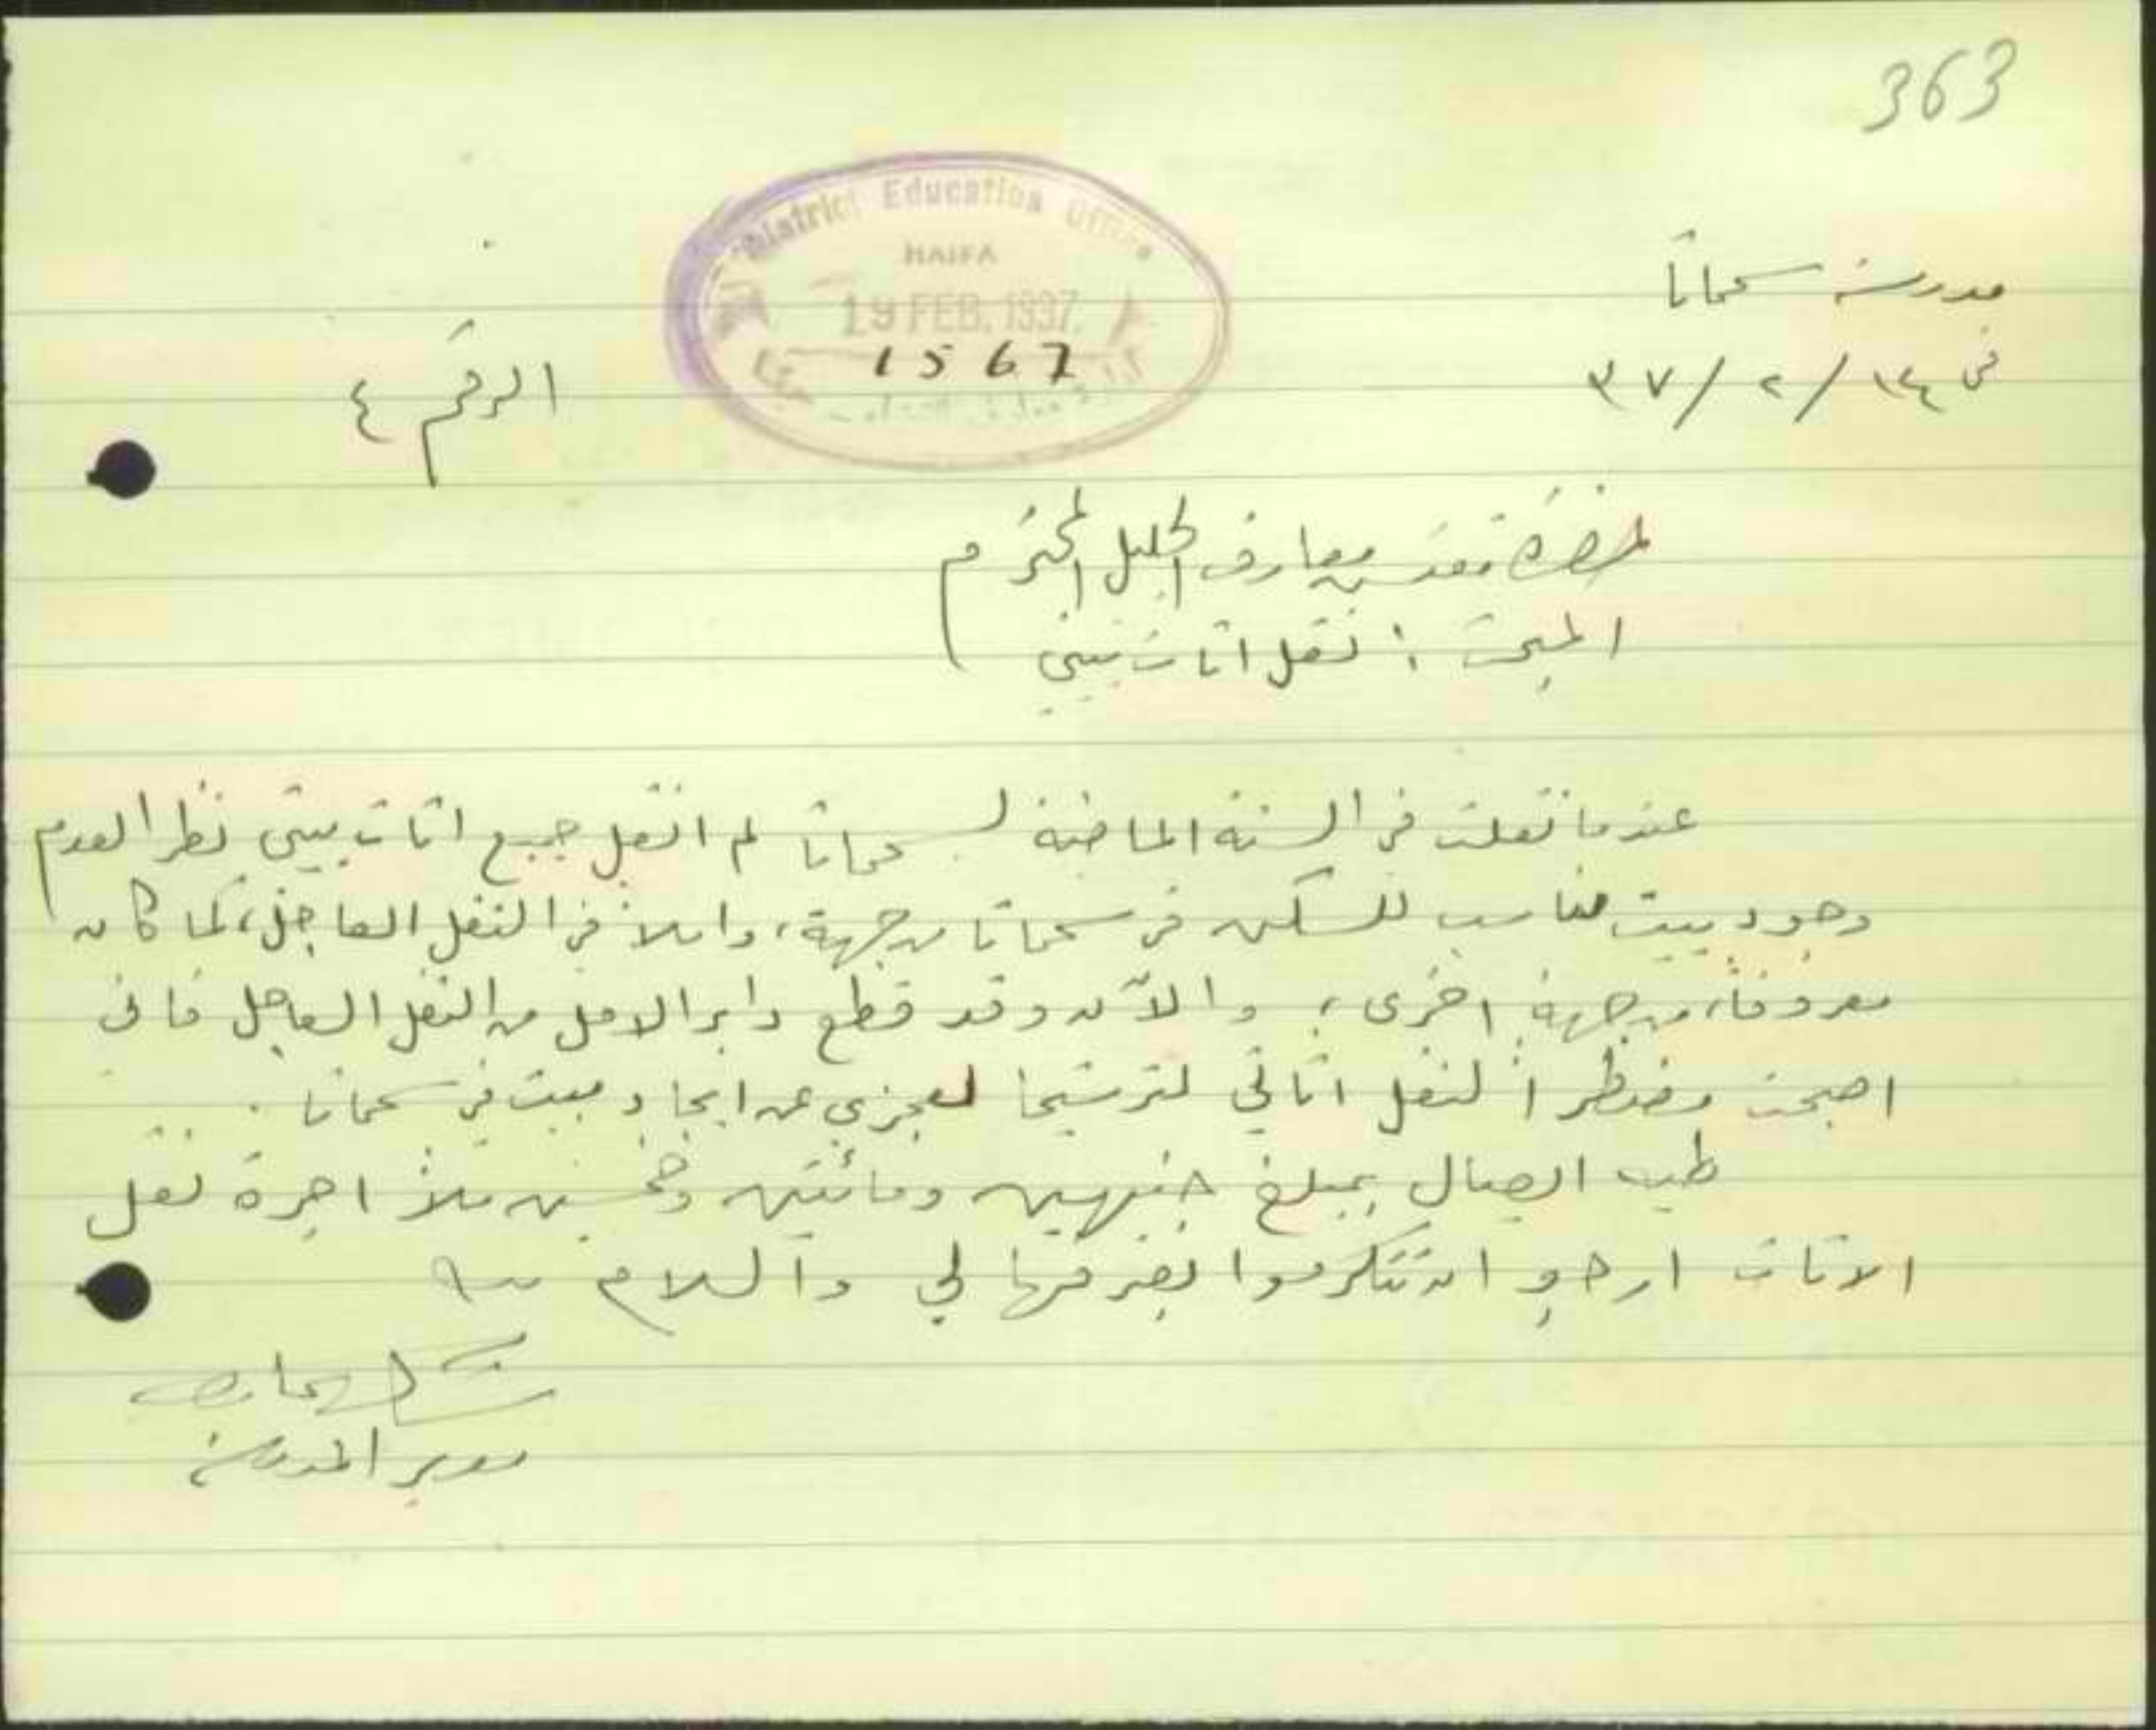 363
District Education Office
HAIFA
19 FEB. 1937
1567
مدرسة سحماتا
في ١٤/٢/٣٧
الرقم ٤
لحضرة مفتش معارف الجليل المحترم
المبحث : نقل اثاث بيتي
عندما نقلت في السنة الماضية لسحماتا لم انقل جميع اثاث بيتي نظرا لعدم
وجود بيت مناسب للسكن في سحماتا من جهة، واملاً في النقل العاجل، كما كان
معروفاً، من جهة اخرى، والآن وقد قطع دابر الامل من النقل العاجل فاني
اصبحت مضطراً لنقل اثاثي لترشيحا لعجزي عن ايجاد بيت في سحماتا .
طيه ايصال بمبلغ جنيهين ومائتين وخمسين ملاً اجرة نقل
الاثاث ارجو ان تتكرموا بصرفها لي والسلام
مدير المدرسة